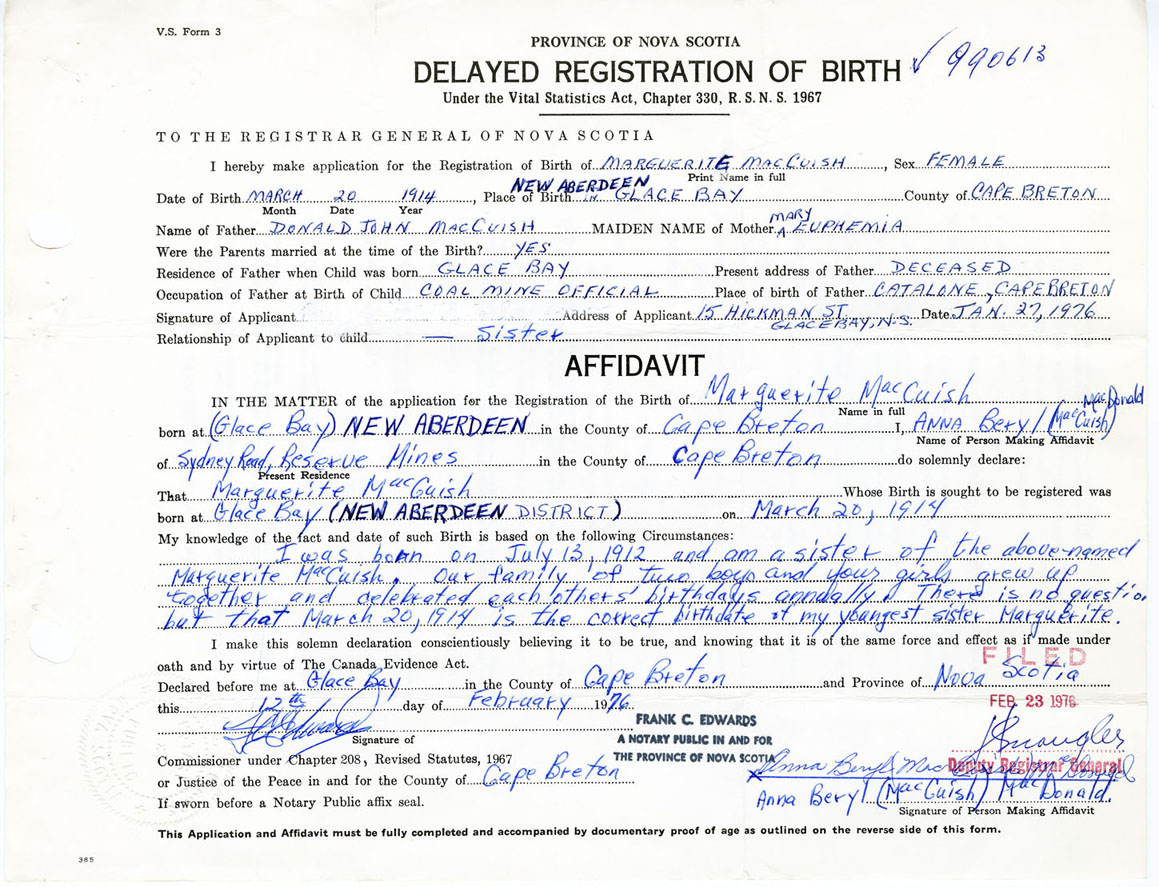 V.S. Form 3
PROVINCE OF NOVA SCOTIA
DELAYED REGISTRATION OF BIRTH ✓ 990613
Under the Vital Statistics Act, Chapter 330, R.S.N.S. 1967
TO THE REGISTRAR GENERAL OF NOVA SCOTIA
I hereby make application for the Registration of Birth of MARGUERITE MACCUISH, Sex FEMALE
Print Name in full
NEW ABERDEEN
Date of Birth MARCH 20 1914, Place of Birth IN GLACE BAY County of CAPE BRETON
Month Date Year
MARY
Name of Father DONALD JOHN MACCUISH MAIDEN NAME of Mother EUPHEMIA
Were the Parents married at the time of the Birth? YES
Residence of Father when Child was born GLACE BAY Present address of Father DECEASED
Occupation of Father at Birth of Child COAL MINE OFFICIAL Place of birth of Father CATALONE, CAPE BRETON
Signature of Applicant Address of Applicant 15 HICKMAN ST. Date JAN. 27, 1976
GLACE BAY, N.S.
Relationship of Applicant to child — Sister
AFFIDAVIT
IN THE MATTER of the application for the Registration of the Birth of Marguerite MacCuish
Name in full
MacDonald
born at (Glace Bay) NEW ABERDEEN in the County of Cape Breton I, ANNA Beryl (MacCuish)
Name of Person Making Affidavit
of Sydney Road, Reserve Mines in the County of Cape Breton do solemnly declare:
Present Residence
That Marguerite MacCuish Whose Birth is sought to be registered was
born at Glace Bay (NEW ABERDEEN DISTRICT) on March 20, 1914
My knowledge of the fact and date of such Birth is based on the following Circumstances:
I was born on July 13, 1912 and am a sister of the above-named
Marguerite MacCuish. Our family of two boys and four girls grew up
together and celebrated each others' birthdays annually. There is no questio
but that March 20, 1914 is the correct birthdate of my youngest sister Marguerite.
I make this solemn declaration conscientiously believing it to be true, and knowing that it is of the same force and effect as if made under
oath and by virtue of The Canada Evidence Act.
FILED
Declared before me at Glace Bay in the County of Cape Breton and Province of Nova Scotia
this 12th day of February 1976.
FEB 23 1976
FRANK C. EDWARDS
A NOTARY PUBLIC IN AND FOR
THE PROVINCE OF NOVA SCOTIA
Signature of
Commissioner under Chapter 208, Revised Statutes, 1967
or Justice of the Peace in and for the County of Cape Breton
Deputy Registrar General
Anna Beryl (MacCuish) MacDonald.
Signature of Person Making Affidavit
If sworn before a Notary Public affix seal.
This Application and Affidavit must be fully completed and accompanied by documentary proof of age as outlined on the reverse side of this form.
385